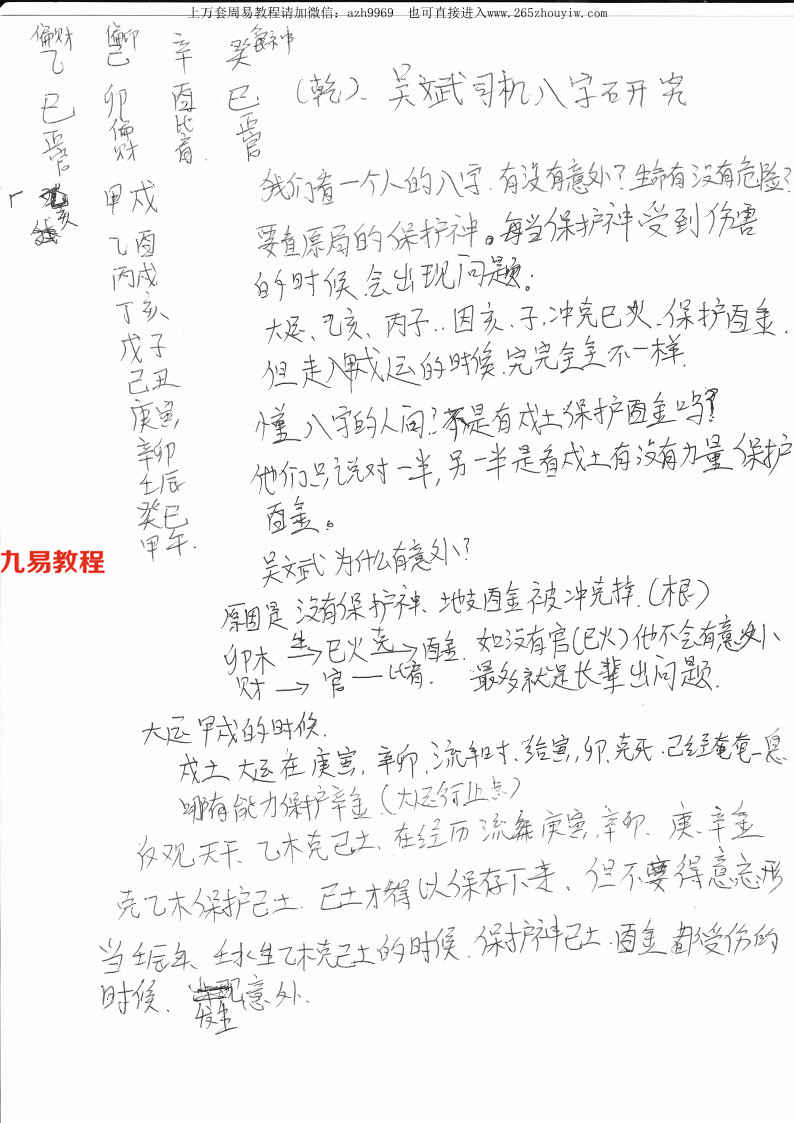 上万套周易教程请加微信：azh9969 也可直接进入www.265zhouyiw.com
偏财 偏印 食神
乙 己 辛 癸
巳 卯 酉 巳
正官 偏财 比肩 正官
(乾)、吴文武司机八字研究
我们看一个人的八字.有没有意外?生命有没有危险?
要查原局的保护神。每当保护神受到伤害
的时候.会出现问题.
大运、乙亥、丙子..因亥.子.冲克巳火.保护酉金.
但走入甲戌运的时候.完完全全不一样.
懂八字的人问?不是有戌土保护酉金吗?
他们只说对一半,另一半是看戌土有没有力量保护
酉金。
甲戌
乙酉
丙戌
丁亥
戊子
己丑
庚寅
辛卯
壬辰
癸巳
甲午.
九易教程
吴文武为什么有意外?
原因是没有保护神、地支酉金被冲克掉.(根)
卯木 生→ 巳火 克→ 酉金. 如没有官(巳火)他不会有意外
财 → 官 — 比肩. 最多就是长辈出问题.
大运甲戌的时候.
戌土大运在庚寅,辛卯.流年时.给寅,卯.克死.已经奄奄一息
哪有能力保护辛金(大运行止点)
反观天干、乙木克己土.在经历流年庚寅.辛卯.庚.辛金
克乙木保护己土.己土才得以保存下来.但不要得意忘形
当壬辰年、壬水生乙木克己土的时候.保护神己土.酉金都受伤的
时候. 发生意外.